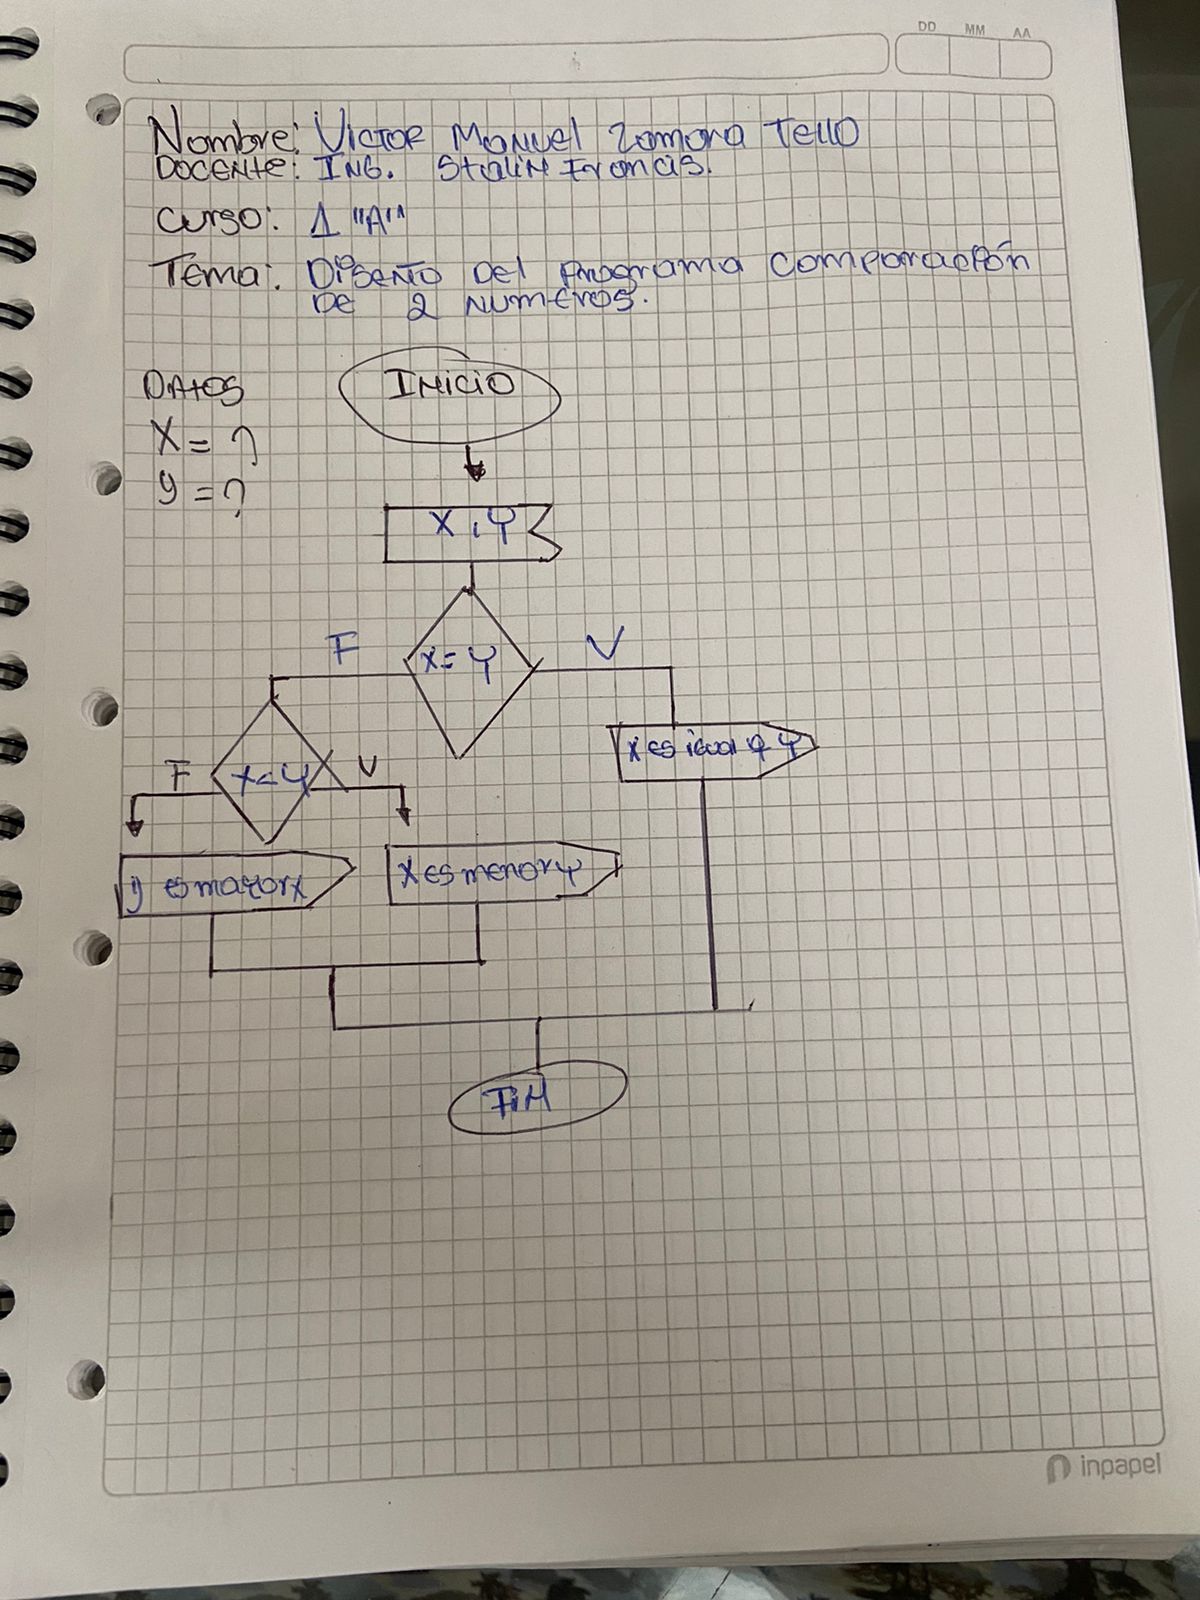 DD MM AA
Nombre: Victor Manuel Zamora Tello
Docente: Ing. Stalin Francis.
Curso: 1 "A"
Tema: Diseño Del Programa Comparación
De 2 Numeros.
Datos
X = ?
y = ?
Inicio
X, Y
X = Y
F
V
X < Y
F
V
X es igual q Y
y es mayor x
X es menor Y
Fin
inpapel